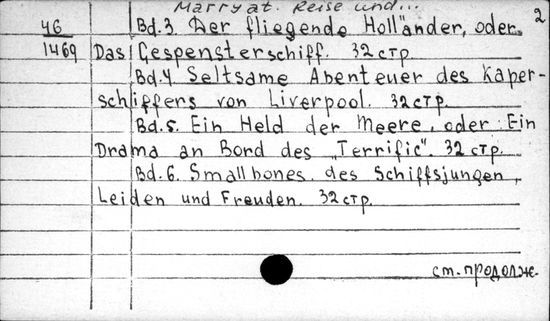 Marryat. Reise und...
2
46
1469
Bd.3 Der fliegende Holl"ander, oder
Das Gespensterschiff. 32 стр.
Bd.4 Seltsame Abenteuer des Kaper-
schiffers von Liverpool. 32 стр.
Bd.5. Ein Held der Meere, oder: Ein
Drama an Bord des „Terrific". 32 стр.
Bd.6. Smallbones. des Schiffsjungen,
Leiden und Freuden. 32 стр.
см. продолж.